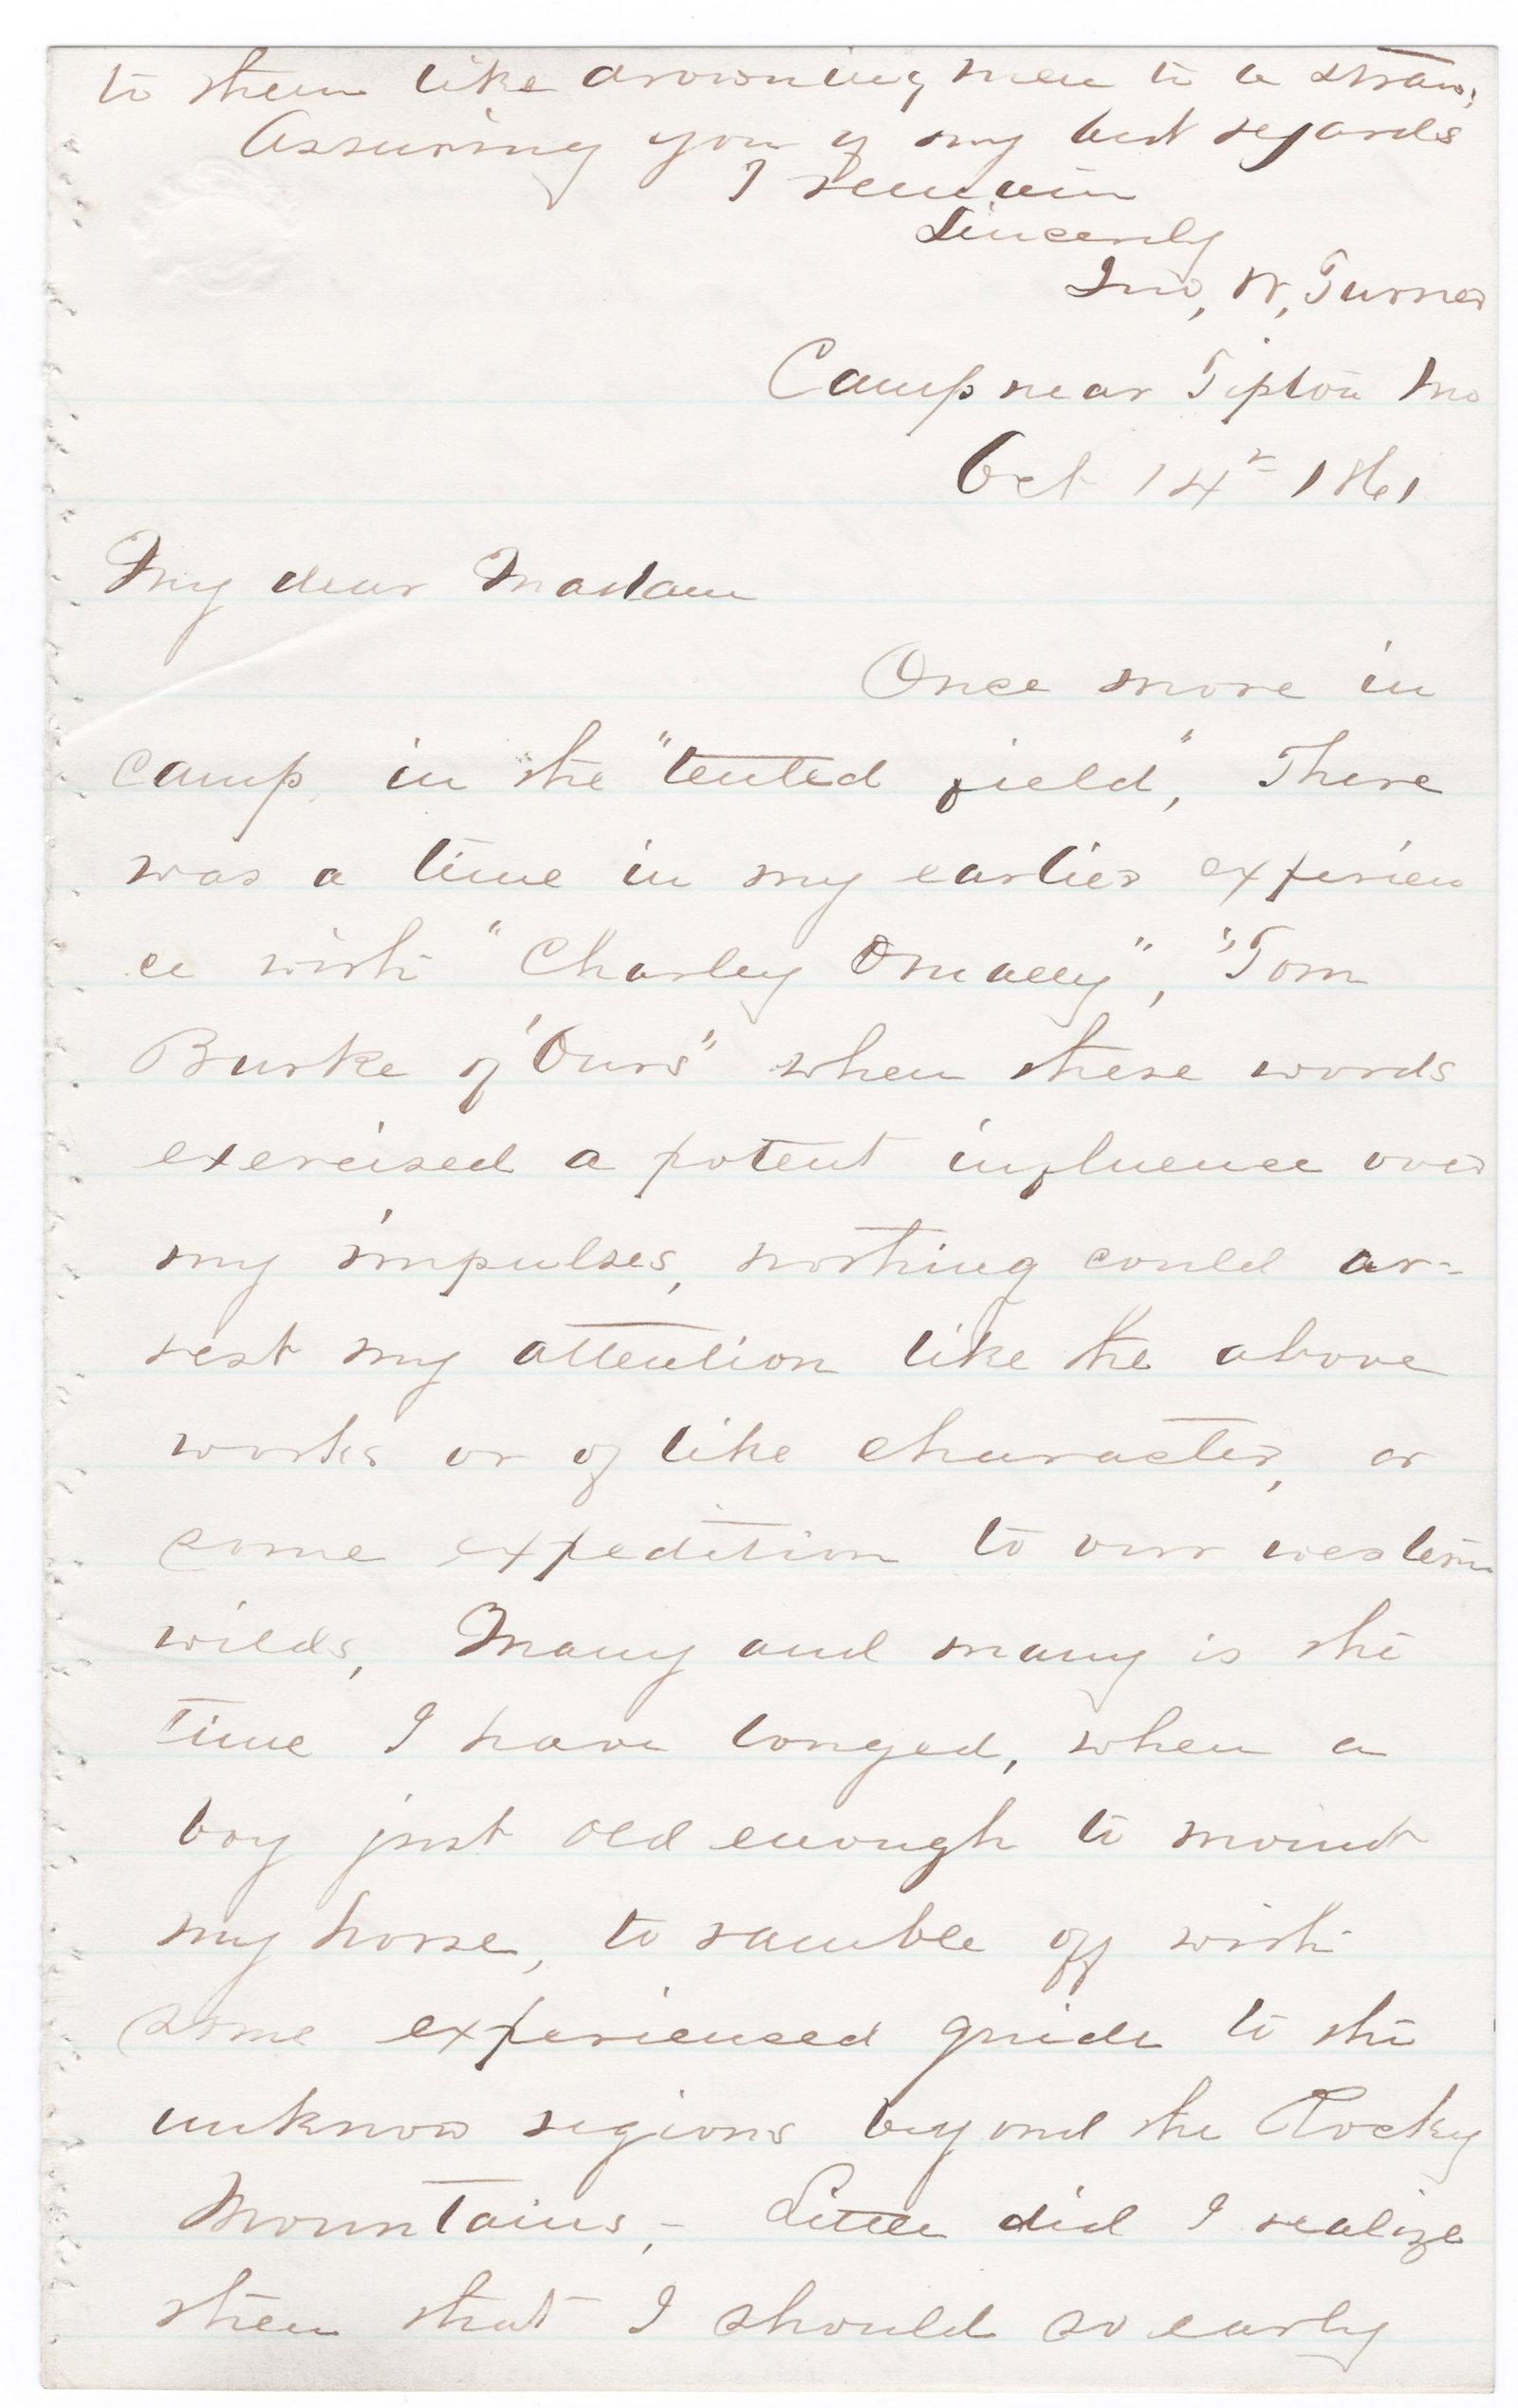 to them like drowning men to a straw.
Assuring you of my best regards
I remain
Sincerely
Jno, W, Turner
Camp near Tipton Mo
Oct 14" 1861
My dear Madam
Once more in
camp, in the "tented field", There
was a time in my earlier experien
ce with "Charley Omally", "Tom
Burke of "Ours" when these words
exercised a potent influence over
my impulses, nothing could ar-
rest my attention like the above
works or of like character, or
some expedition to our western
wilds, Many and many is the
time I have longed, when a
boy just old enough to mount
my horse, to ramble off with
some experienced guide to the
unknow regions beyond the Rocky
Mountains, - Little did I realize
then that I should so early